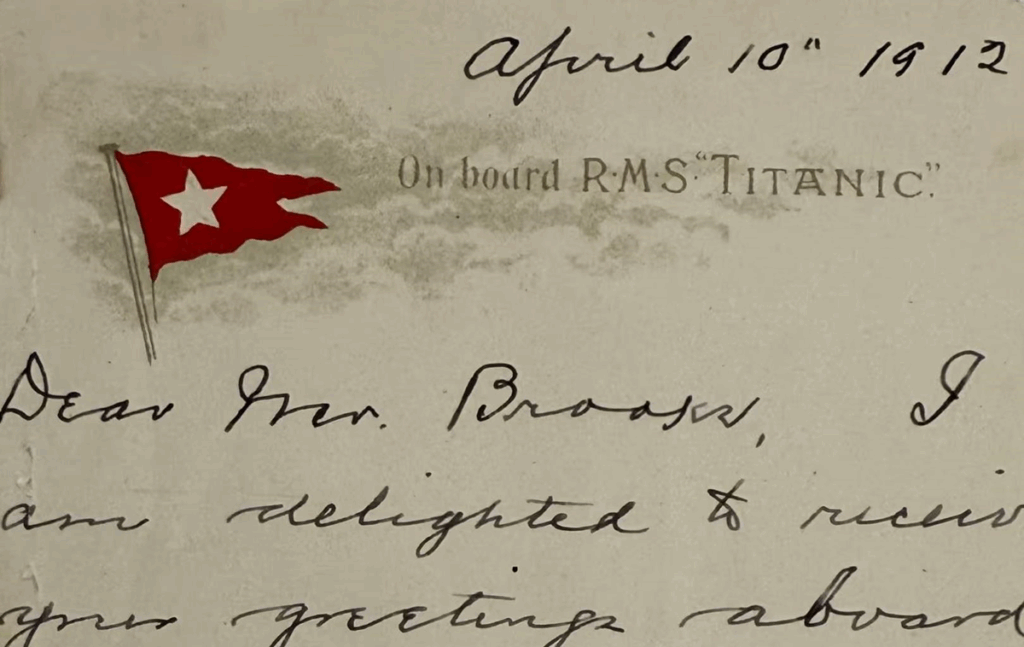 April 10" 1912
On board R·M·S·"TITANIC."
Dear Mr. Brooks, I
am delighted to receiv
your greetings aboard